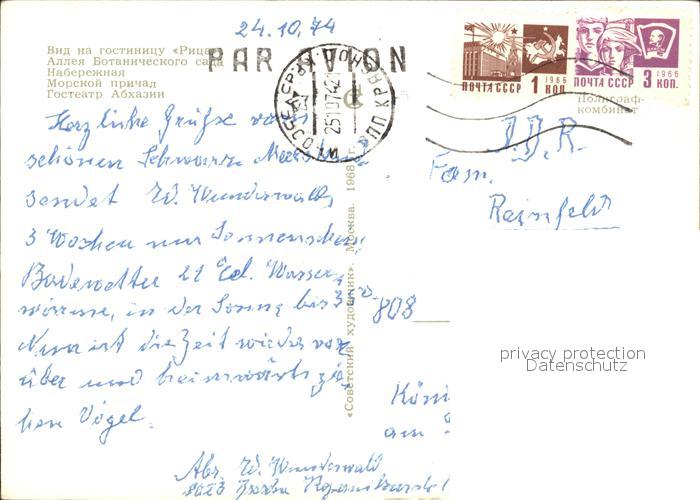 24.10.74
Вид на гостиницу «Рица»
Аллея Ботанического сада
Набережная
Морской причал
Гостеатр Абхазии
PAR AVION
ПОЧТА СССР 1 КОП. 1966
ПОЧТА СССР 3 КОП. 1966
Полиграф-
комбинат
Herzliche Grüße vom
schönen Schwarze Meer
sendet W. Wunderwald,
3 Wochen nur Sonnenschein
Badewetter 21 Cel. Wasser
wärme, in der Sonne bis 30
Nun ist die Zeit wieder vor
über und heimwärts zie
hen Vögel.
Abs. W. Wunderwald
«Советский художник». Москва. 1968
DDR
Fam.
Reinfeldt
808
privacy protection
Datenschutz
Köni
am